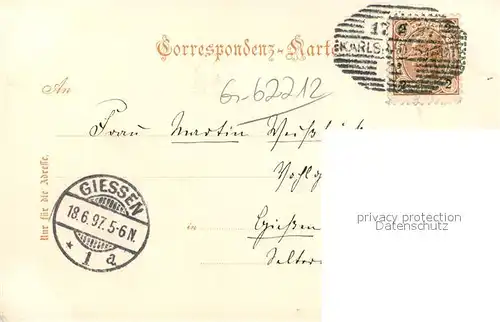 Correspondenz-Karte
12
KARLS
2
2
An
G-62212
Frau Martin
GIESSEN
18.6.97.5-6N.
* 1 a
Nur für die Adresse.
in Gießen
Selter
privacy protection
Datenschutz